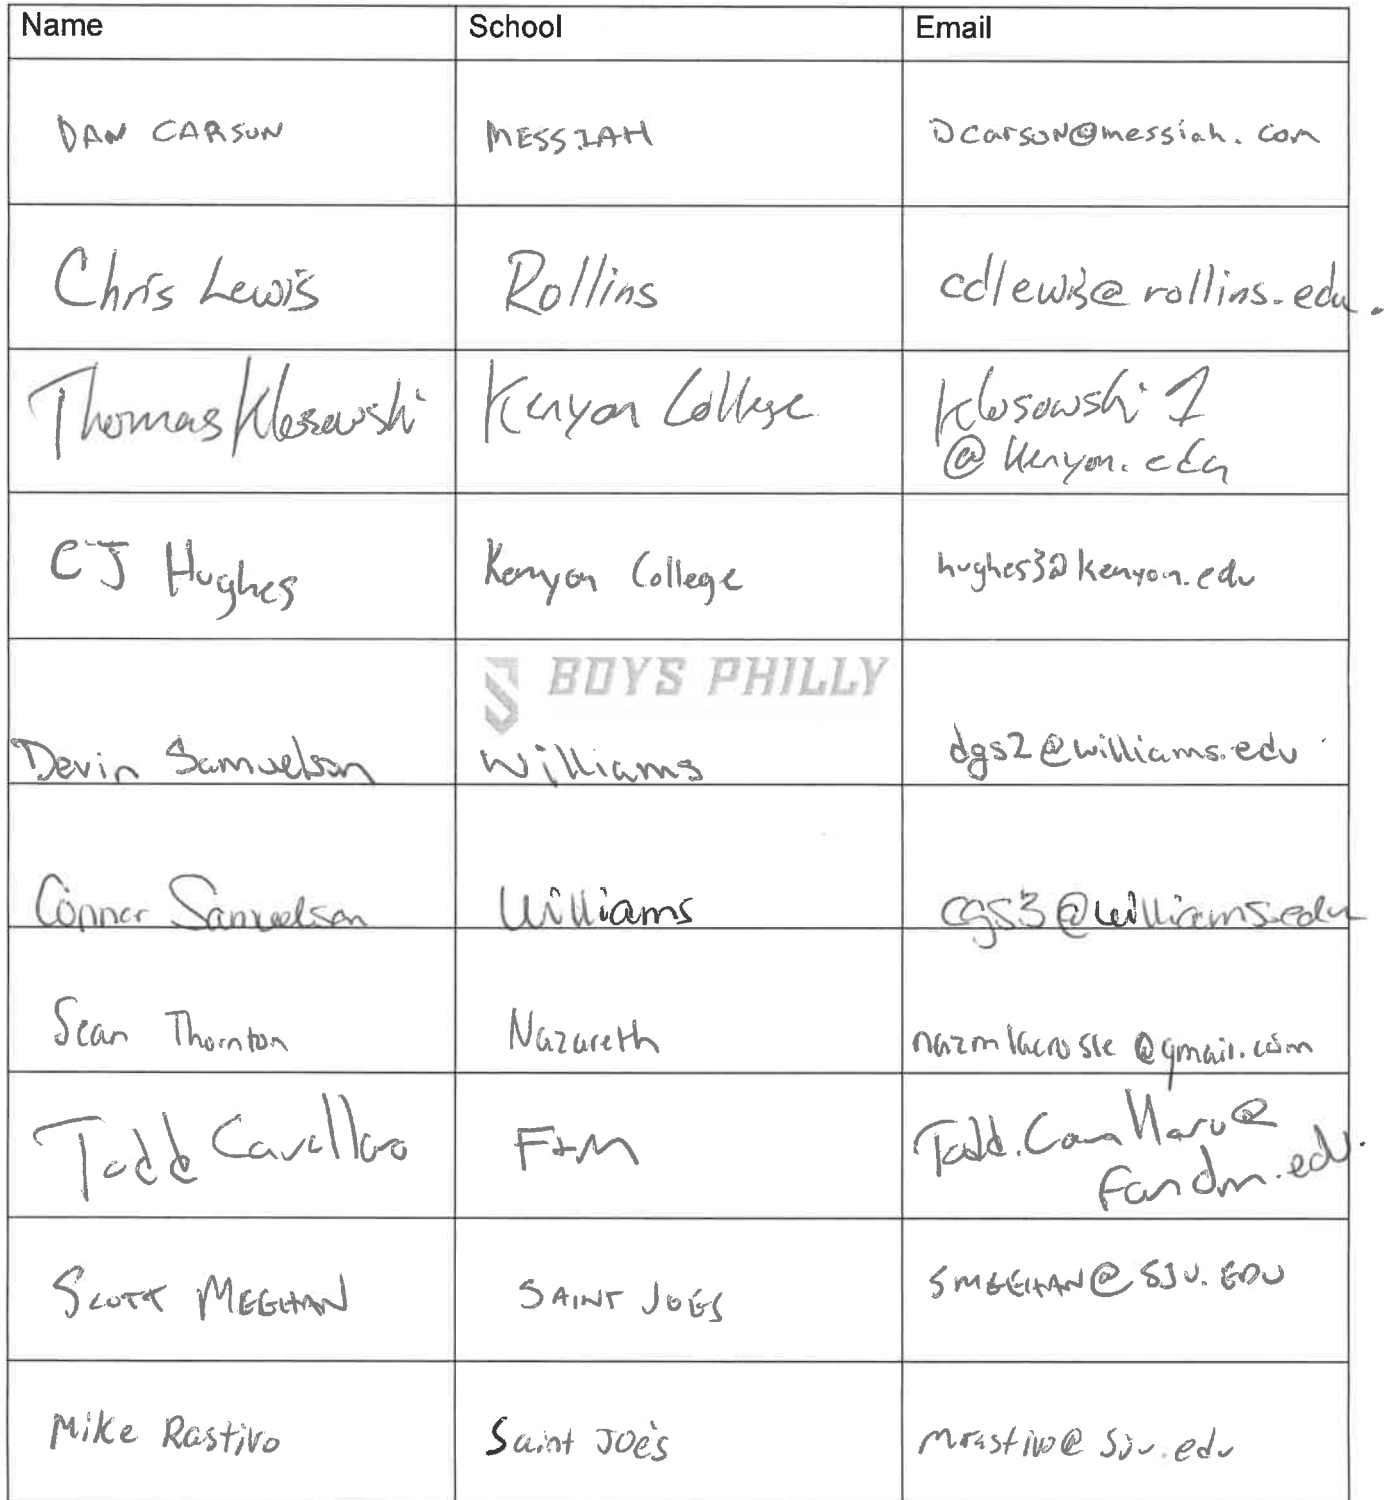 Name School Email
DAN CARSON MESSIAH Dcarson@messiah.com
Chris Lewis Rollins cdlewis@rollins.edu.
Thomas Klosowski Kenyon College Klosowski1
@kenyon.edu
CJ Hughes Kenyon College hughes3@kenyon.edu
S BOYS PHILLY
Devin Samuelson Williams dgs2@williams.edu
Connor Samuelson Williams cgs3@williams.edu
Sean Thornton Nazareth nazmlacrosse@gmail.com
Todd Cavallaro F+M Todd.Cavallaro@
fandm.edu.
SCOTT MEEHAN SAINT JOES SMEEHAN@SJU.EDU
Mike Rastivo Saint Joe's mrastivo@sju.edu